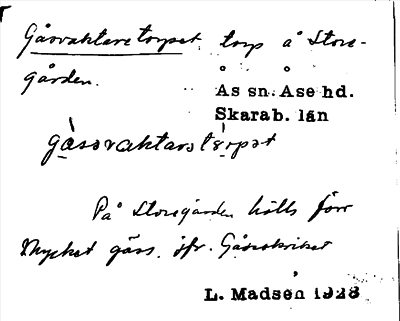 Gåsvaktaretorpet, torp å Store-
gården.
Ås sn. Åse hd.
Skarab. län
gåsavaktaretorpet
På Storegården hölls förr
mycket gäss. jfr. Gåsaskriket
L. Madsén 1928